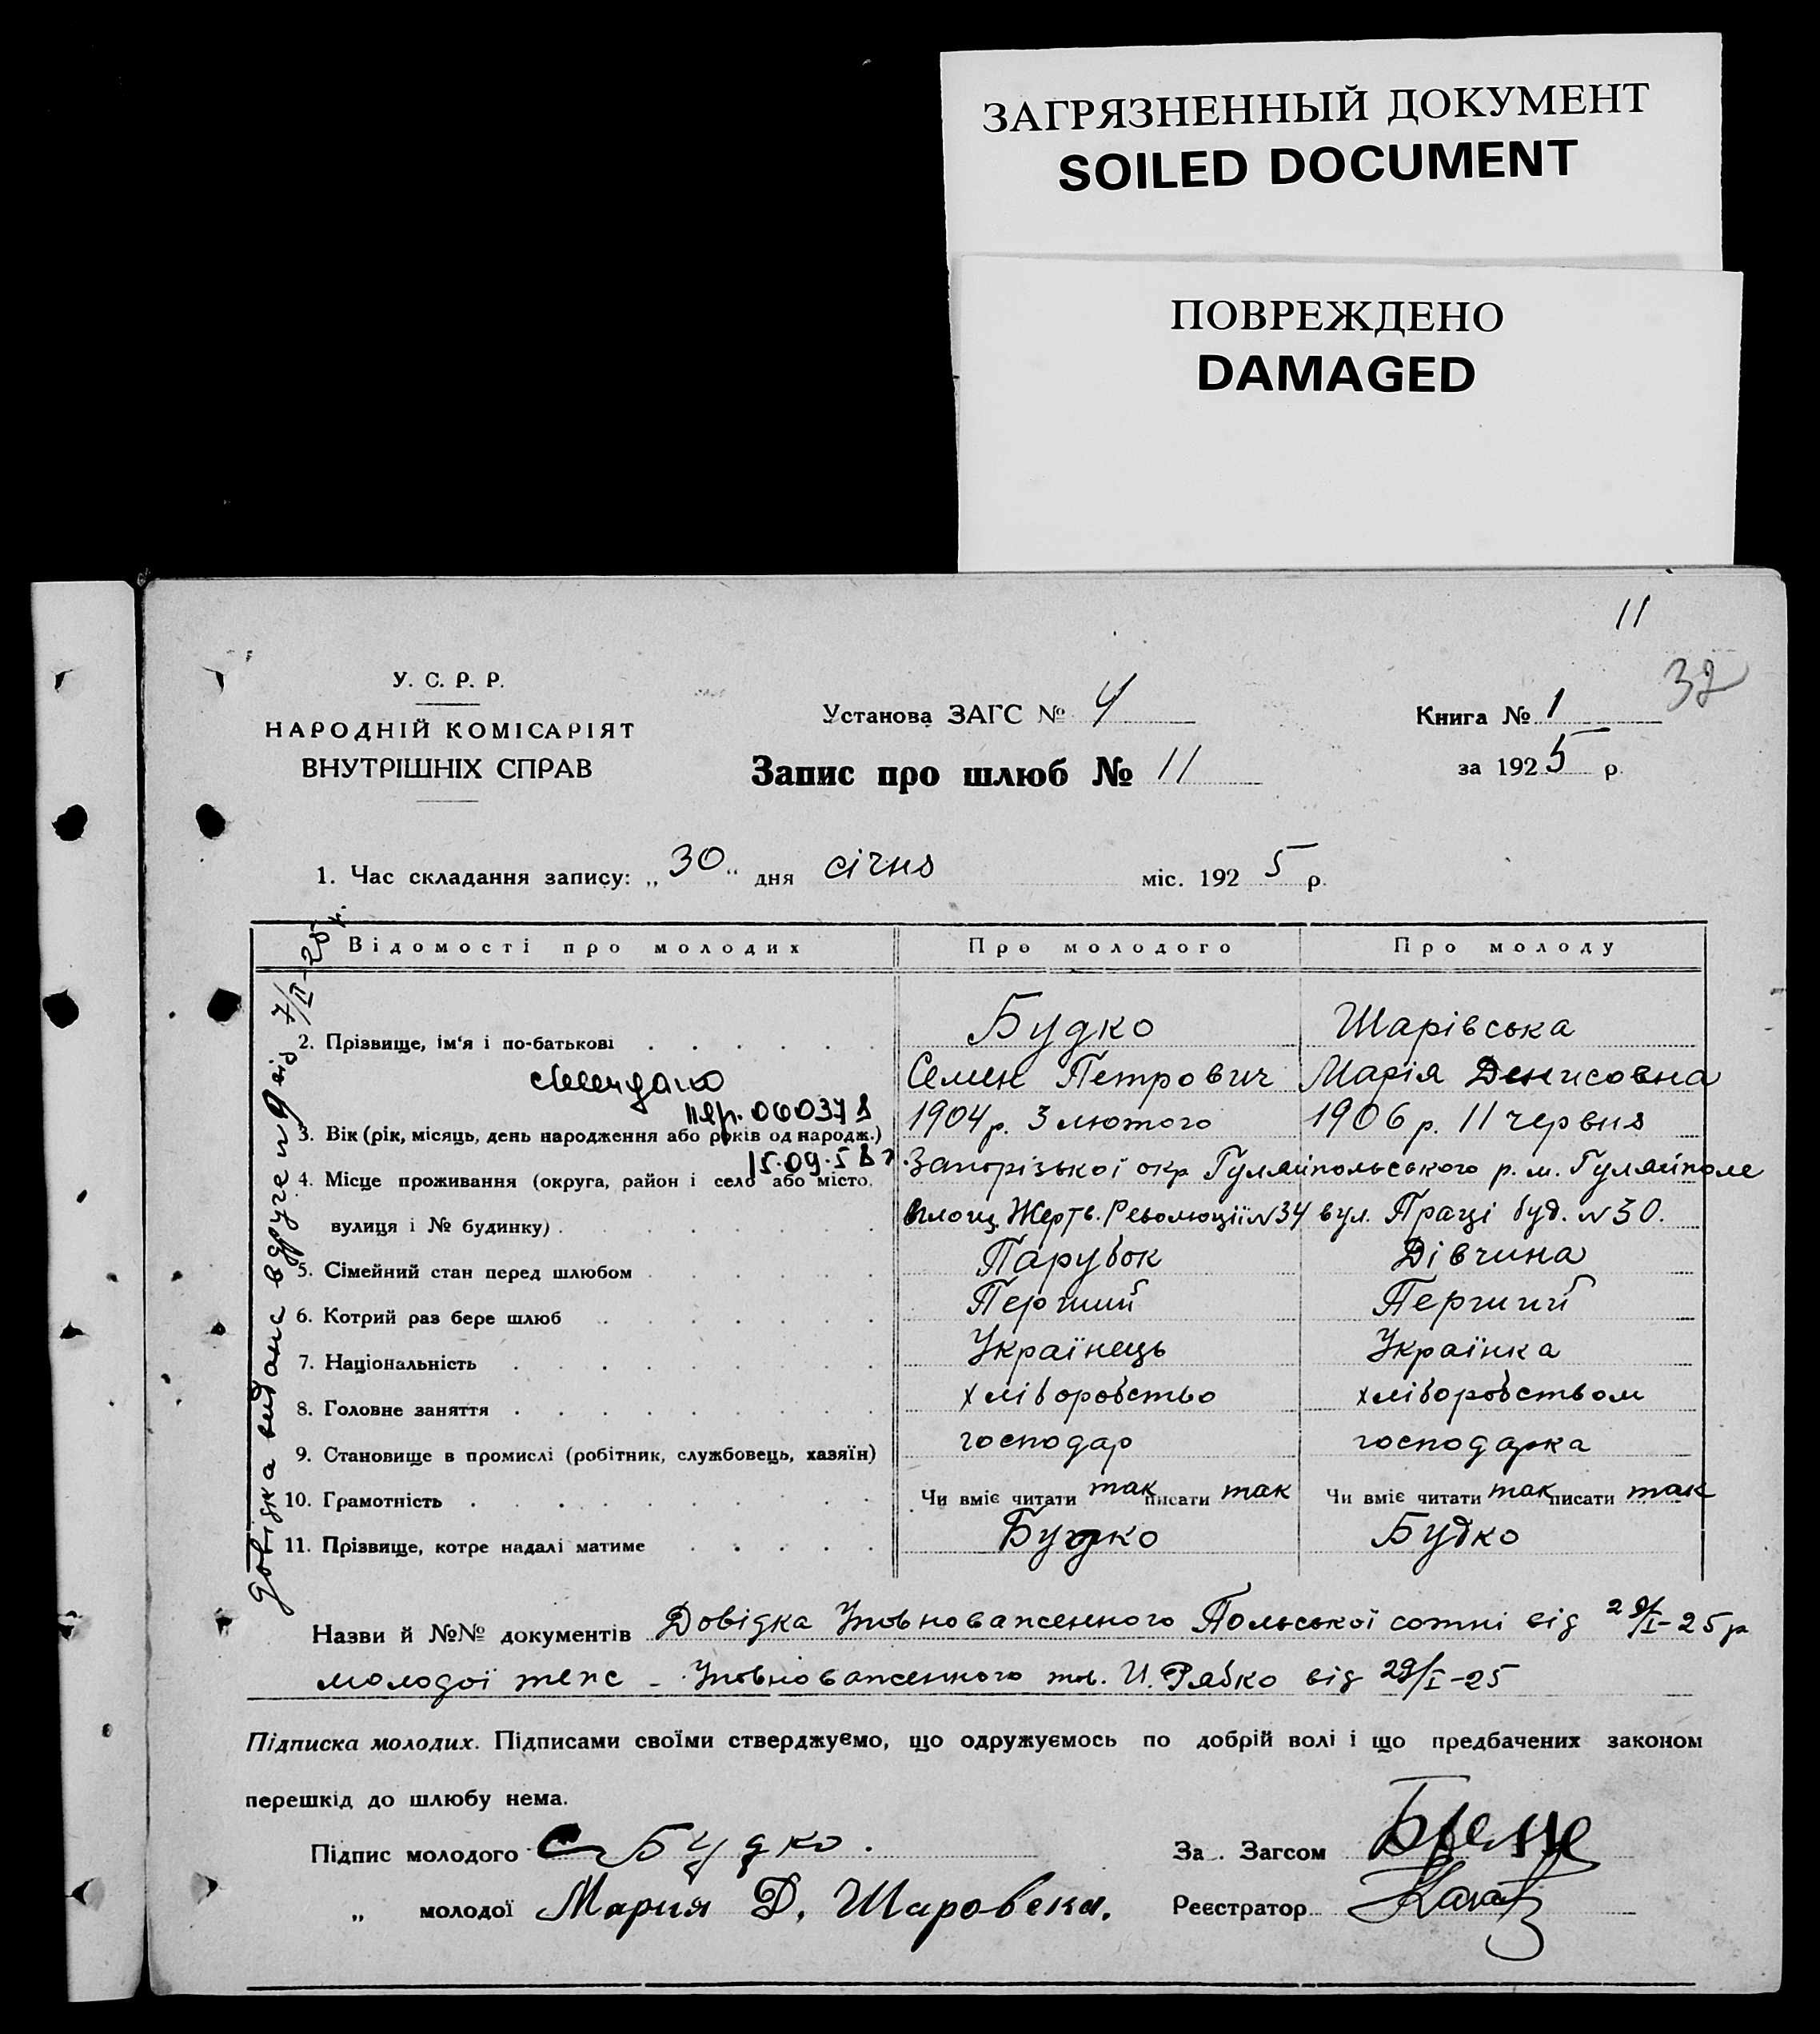 ЗАГРЯЗНЕННЫЙ ДОКУМЕНТ
SOILED DOCUMENT
ПОВРЕЖДЕНО
DAMAGED
11
32
У. С. Р. Р.
НАРОДНІЙ КОМІСАРІЯТ
ВНУТРІШНІХ СПРАВ
Установа ЗАГС № 4
Запис про шлюб № 11
Книга № 1
за 1925 р.
1. Час складання запису: „30" дня січня міс. 1925 р.
Відомості про молодих Про молодого Про молоду
2. Прізвище, ім'я і по-батькові Будко Шарівська
Семен Петрович Марія Денисовна
060378
3. Вік (рік, місяць, день народження або років од народж.) 1904 р. 3 лютого 1906 р. 11 червня
15.09.58 г.
4. Місце проживання (округа, район і село або місто, Запорізької окр Гуляйпольського р. м. Гуляйполе
вулиця і № будинку) площ. Жертв. Революції N34 вул. Праці буд. N 30.
5. Сімейний стан перед шлюбом Парубок Дівчина
6. Котрий раз бере шлюб Перший Перший
7. Національність Українець Українка
8. Головне заняття хліборобство хліборобством
9. Становище в промислі (робітник, службовець, хазяїн) господар господарка
10. Грамотність Чи вміє читати так писати так Чи вміє читати так писати так
11. Прізвище, котре надалі матиме Будко Будко
довідка видана вдруге від 7/II-25 р.
Назви й №№ документів Довідка Уповноваженного Польської сотні від 29/I-25 р
молодої теж - Уповноваженного тов. И. Рябко від 29/I-25
Підписка молодих. Підписами своїми стверджуємо, що одружуємось по добрій волі і що предбачених законом
перешкід до шлюбу нема.
Підпис молодого С Будко.
За . Загсом
„ молодої Мария Д. Шаровска.
Реєстратор